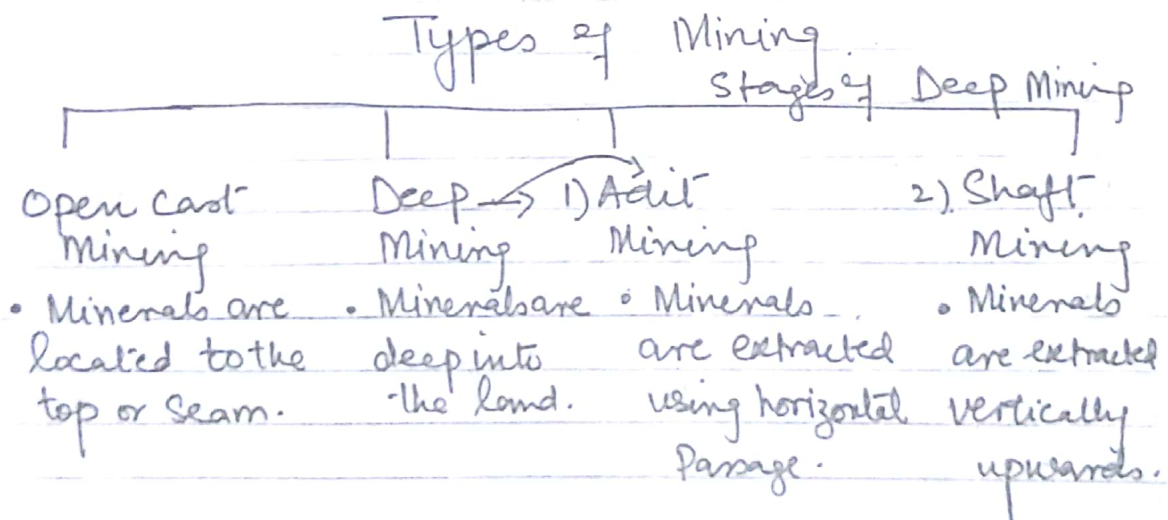 Types of Mining
Stages of Deep Mining
Open Cast
Mining
• Minerals are
located to the
top or seam.
Deep
Mining
• Minerals are
deep into
the land.
1) Adit
Mining
• Minerals
are extracted
using horizontal
Passage.
2). Shaft
Mining
• Minerals
are extracted
vertically
upwards.